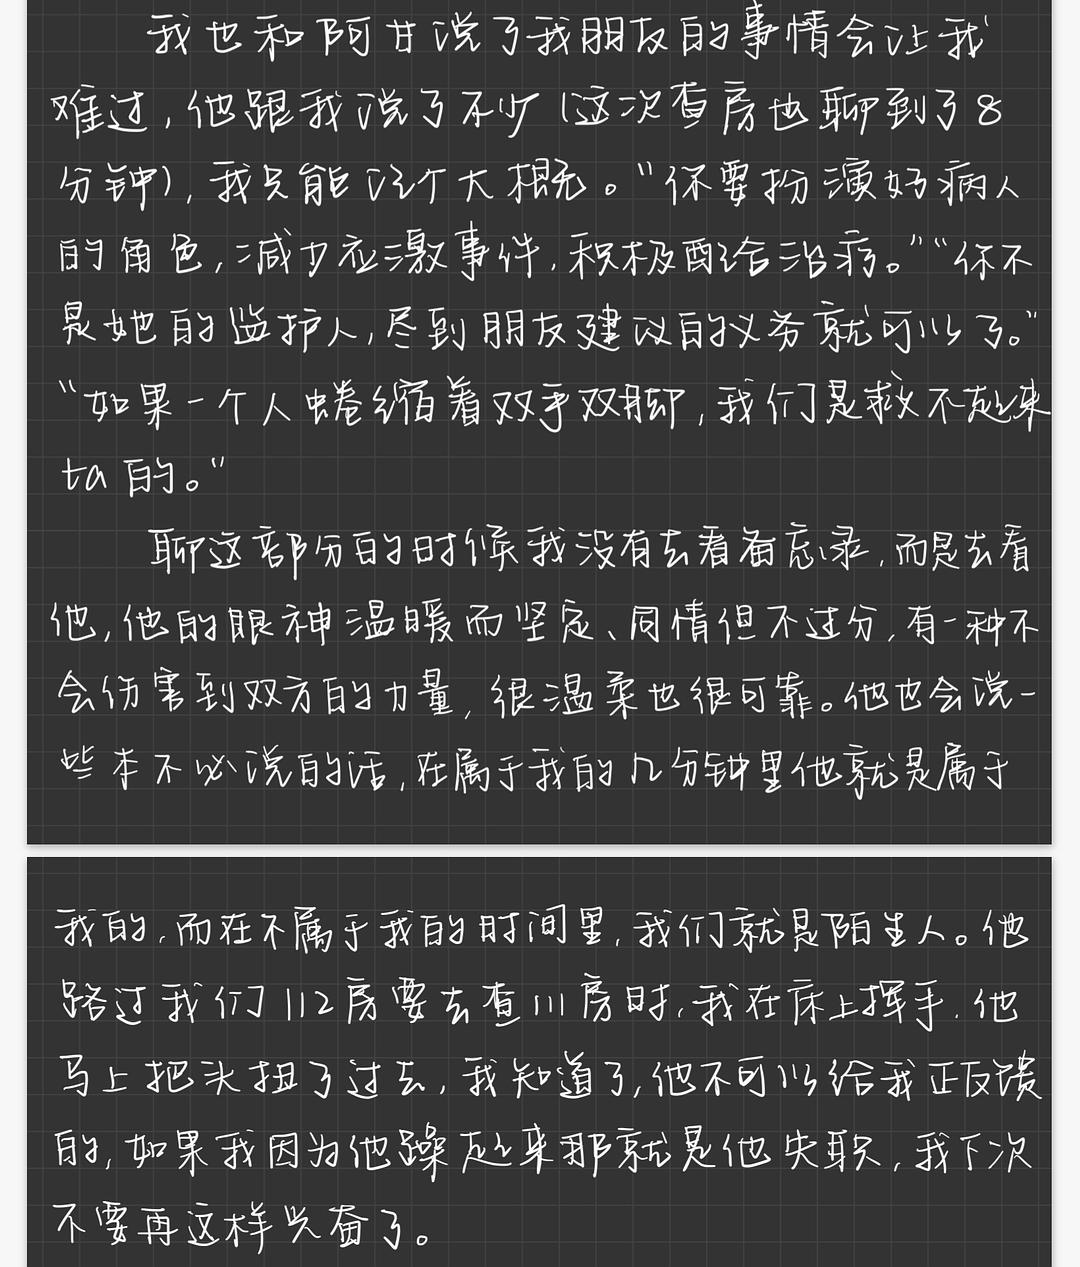 我也和阿甘说了我朋友的事情会让我
难过，他跟我说了不少（这次查房也聊到了8
分钟），我只能记个大概。“你要扮演好病人
的角色，减少应激事件，积极配合治疗。”“你不
是她的监护人，尽到朋友建议的义务就可以了。”
“如果一个人蜷缩着双手双脚，我们是救不起来
ta的。”
聊这部分的时候我没有去看备忘录，而是去看
他，他的眼神温暖而坚定、同情但不过分，有一种不
会伤害到双方的力量，很温柔也很可靠。他也会说一
些本不必说的话，在属于我的几分钟里他就是属于
我的，而在不属于我的时间里，我们就是陌生人。他
路过我们112房要去查111房时，我在床上挥手，他
马上把头扭了过去，我知道了，他不可以给我正反馈
的，如果我因为他躁起来那就是他失职，我下次
不要再这样兴奋了。